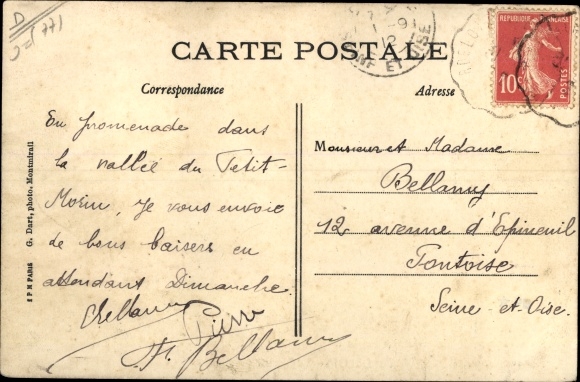 D
771
CARTE POSTALE
Correspondance
Adresse
RÉPUBLIQUE FRANÇAISE
10c
POSTES
ET OISE
En promenade dans
la vallée du Petit-
Morin, je vous envoie
de bons baisers en
attendant Dimanche.
EBellamy
Pierre
H. Bellamy
Monsieur et Madame
Bellamy
12 avenue d'Epineuil
Pontoise
Seine-et-Oise.
G. Dart, photo. Montmirail
E P N PARIS